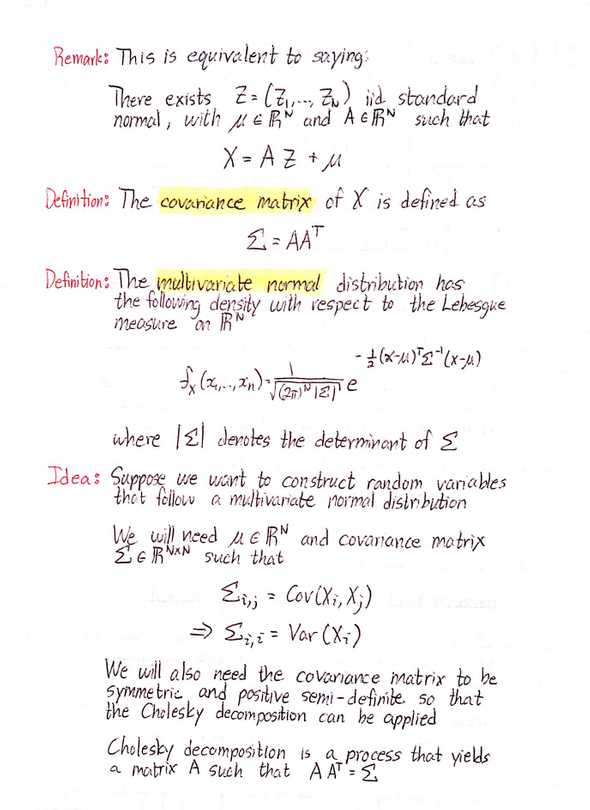 Remark: This is equivalent to saying:
There exists Z = (Z₁,..., Z_N) iid standard
normal, with μ ∈ ℝᴺ and A ∈ ℝᴺ such that
X = A Z + μ
Definition: The covariance matrix of X is defined as
Σ = AAᵀ
Definition: The multivariate normal distribution has
the following density with respect to the Lebesgue
measure on ℝᴺ
f_X (x₁,...,x_n) = 1/√((2π)ᴺ |Σ|) e^(-½(x-μ)ᵀΣ⁻¹(x-μ))
where |Σ| denotes the determinant of Σ
Idea: Suppose we want to construct random variables
that follow a multivariate normal distribution
We will need μ ∈ ℝᴺ and covariance matrix
Σ ∈ ℝᴺˣᴺ such that
Σ_i,j = Cov(X_i, X_j)
⇒ Σ_i,i = Var(X_i)
We will also need the covariance matrix to be
symmetric and positive semi-definite so that
the Cholesky decomposition can be applied
Cholesky decomposition is a process that yields
a matrix A such that A Aᵀ = Σ